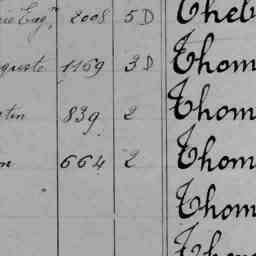 rie Eug. 2008 5 D Theb
guste 1169 3 D Thom
tin 839 2 Thom
664 2 Thom
Thom